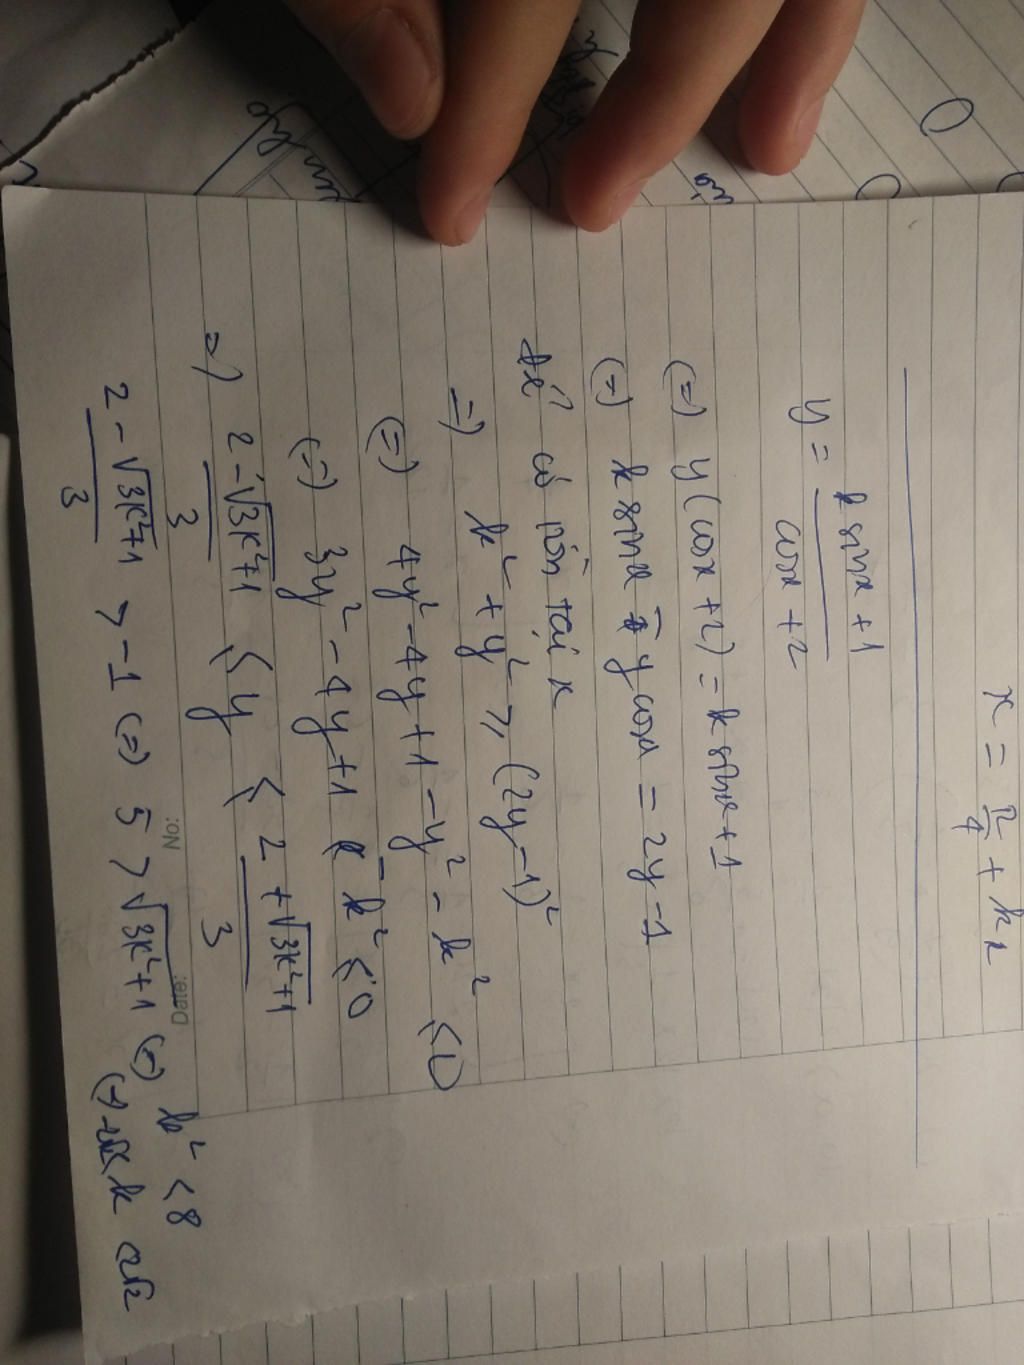 x = π/4 + kπ
y = (k sinx + 1)/(cosx + 2)
(=) y(cosx + 2) = k sinx + 1
(=) k sinx - y cosx = 2y - 1
để có tồn tại x
=) k² + y² ≥ (2y - 1)²
(=) 4y² - 4y + 1 - y² - k² ≤ 0
(=) 3y² - 4y + 1 - k² ≤ 0
=) (2 - √3k²+1)/3 ≤ y ≤ (2 + √3k²+1)/3
No: Date:
(2 - √3k²+1)/3 > -1 (=) 5 > √3k²+1 (=) k² < 8
(=) -2√2 < k < 2√2